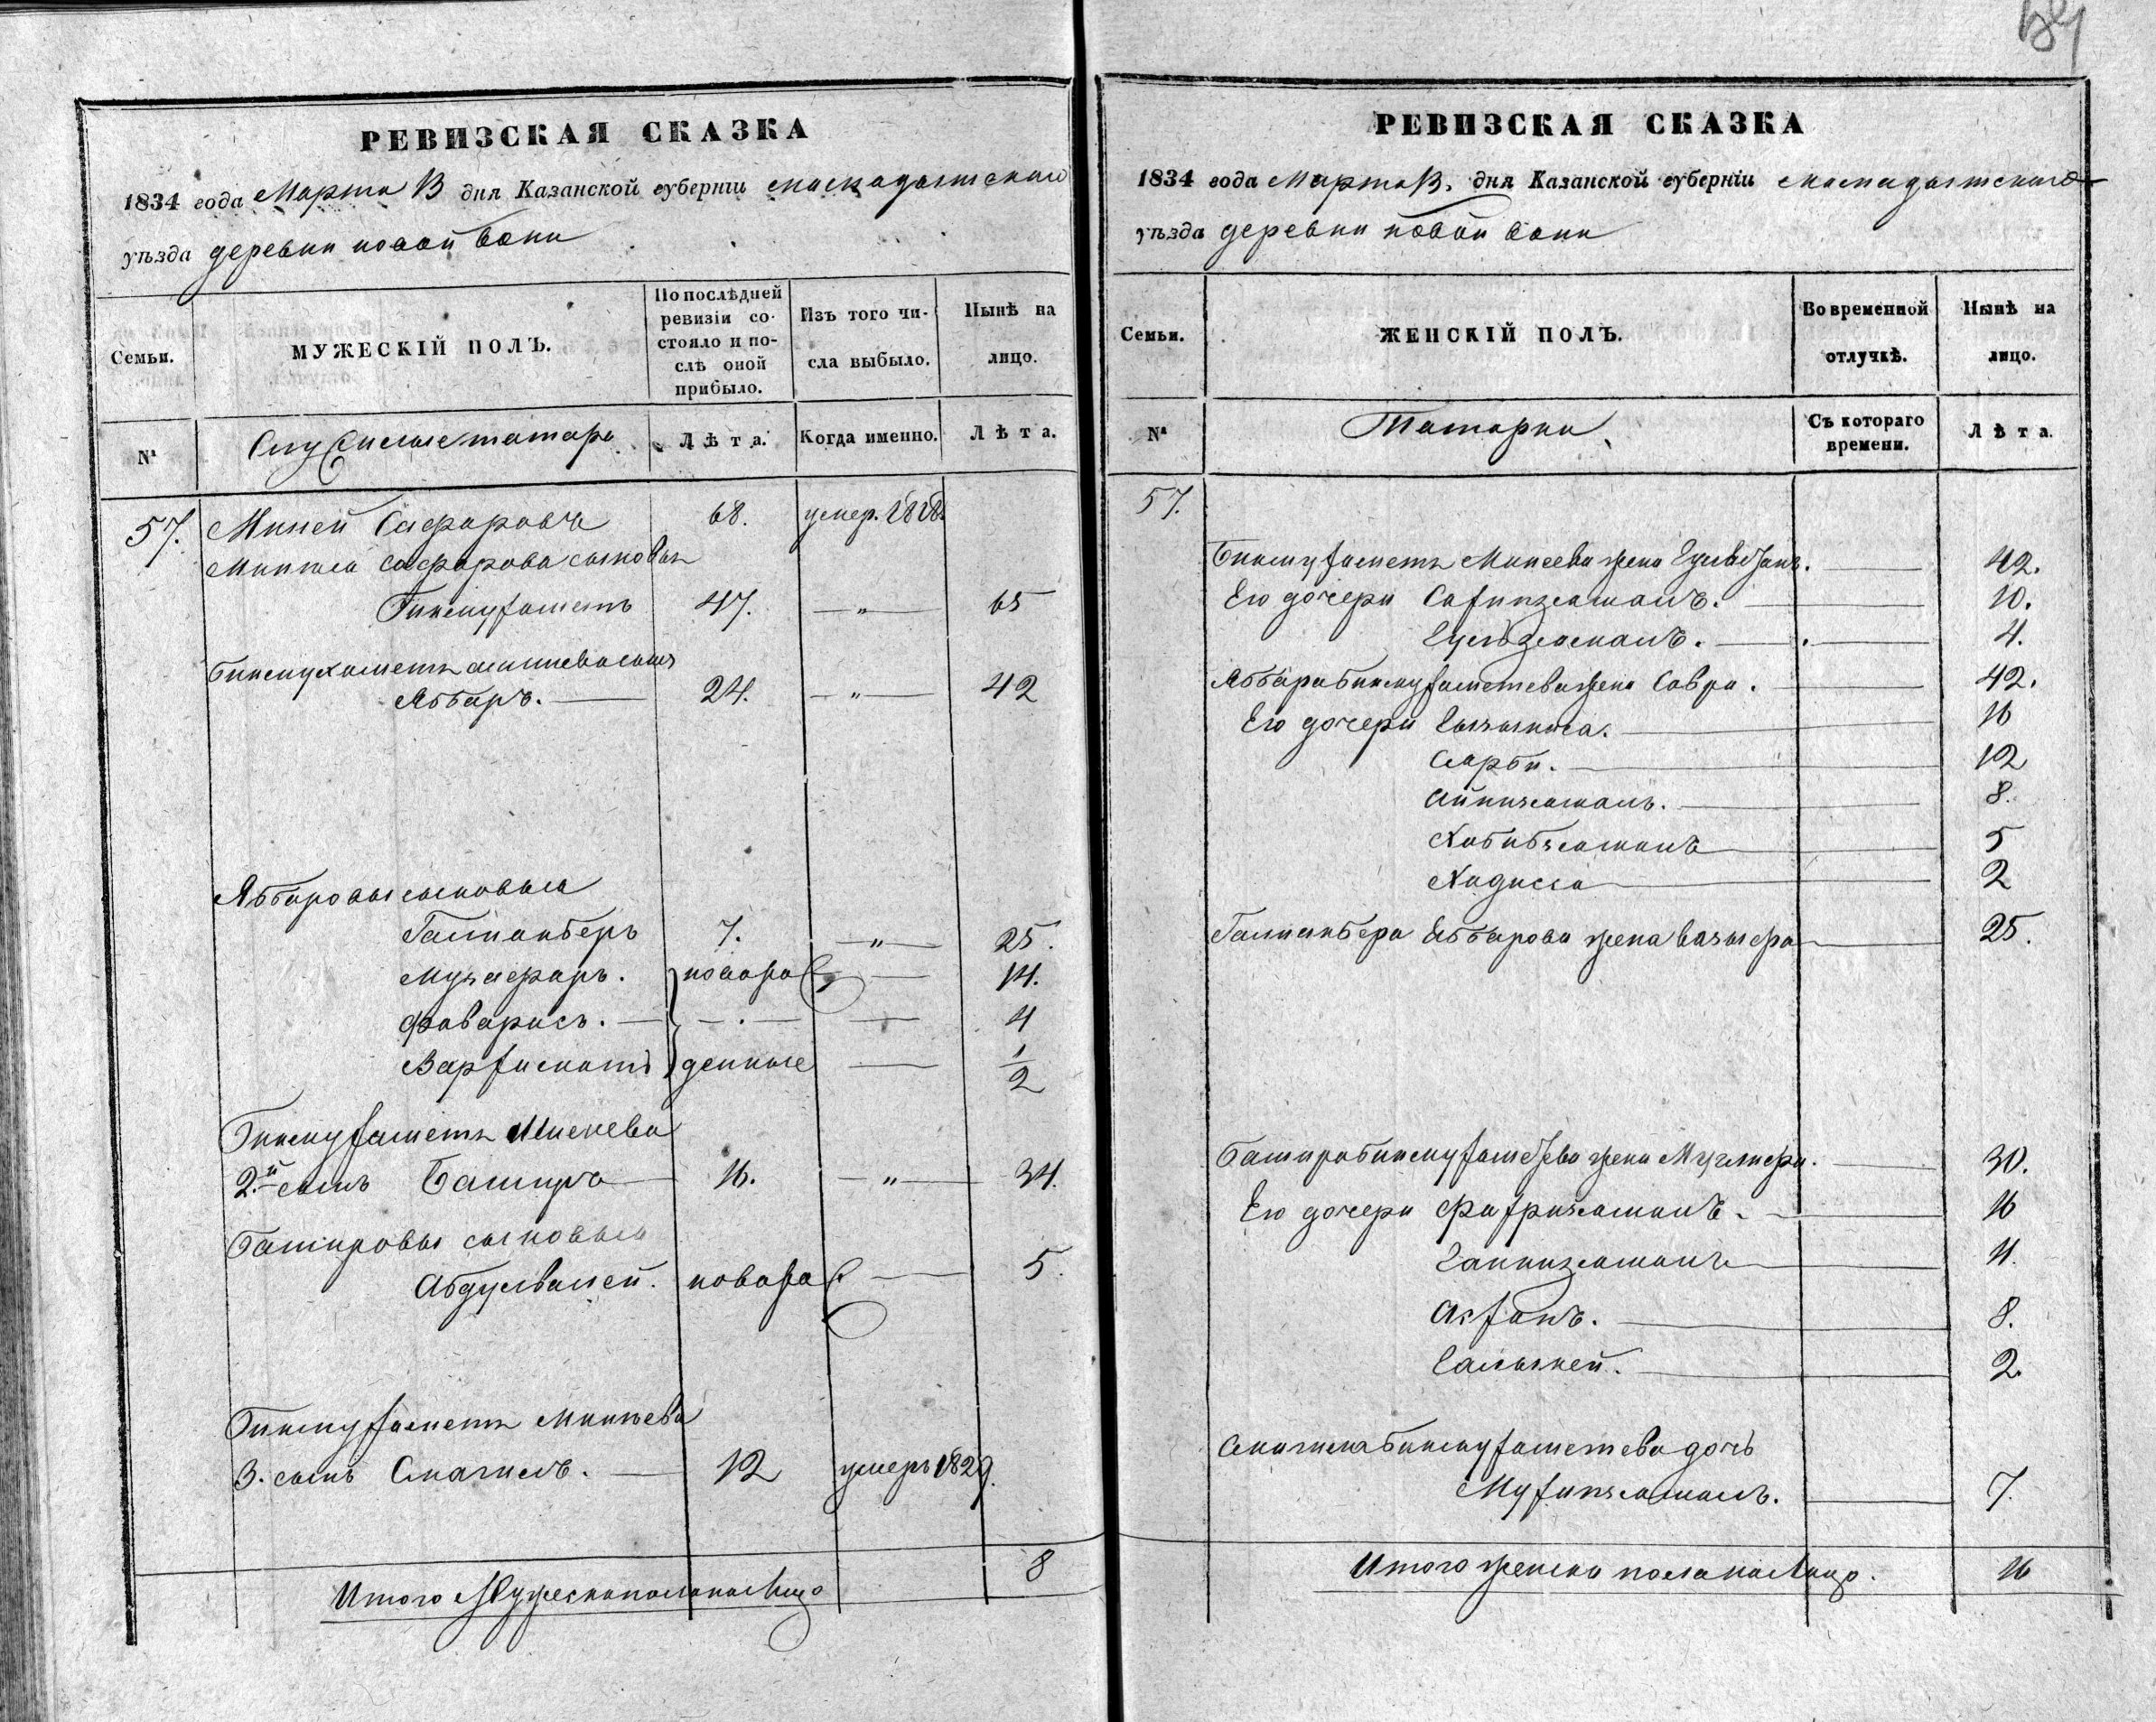 РЕВИЗСКАЯ СКАЗКА
1834 года Марта 13 дня Казанской губерніи мамадышскаго
уѣзда деревни новой
Семьи.
МУЖЕСКІЙ ПОЛЪ.
По послѣдней ревизіи состояло и послѣ оной прибыло.
Изъ того числа выбыло.
Нынѣ на лицо.
№
Служилые татары
Лѣта.
Когда именно.
Лѣта.
57. Миней Сафаровъ 68. умер. 1818.
Минея Сафарова сыновья
Бикмухаметь 47. — " — 65
Бикмухаметь минеева сынъ
Яббаръ. 24. — " — 42
Ябборовы сыновья
Галиакберъ 7. — " — 25.
Музафаръ. новорож 14.
Фаварисъ. — . — 4
денные 1/2
Бикмухаметь Минеева
2й сынъ Баширъ 16. — " — 34.
Башировы сыновья
Абдулвалей. новорож 5.
Бикмухаметь Минеева
3. сынъ Смагилъ. 12 умеръ 1829.
Итого Мужеска пола на Лицо 8
РЕВИЗСКАЯ СКАЗКА
1834 года Марта 13. дня Казанской губерніи мамадышскаго
уѣзда деревни новой
Семьи.
ЖЕНСКІЙ ПОЛЪ.
Во временной отлучкѣ.
Нынѣ на лицо.
№
Татарки
Съ котораго времени.
Лѣта.
57.
Бикмухаметь Минеева жена 42.
Его дочери 10.
Гульзямалъ. 4.
Ябборабикмухаметева жена Савра. 42.
Его дочери 16
Сарби. 12
8.
Хабибзямалъ 5
Хадиса 2
Галиакбера Ябборова жена 25.
Баширабикмухаметева жена 30.
Его дочери 16
11.
8.
2.
Смагила бикмухаметева дочь
7.
Итого женска пола на Лицо. 16